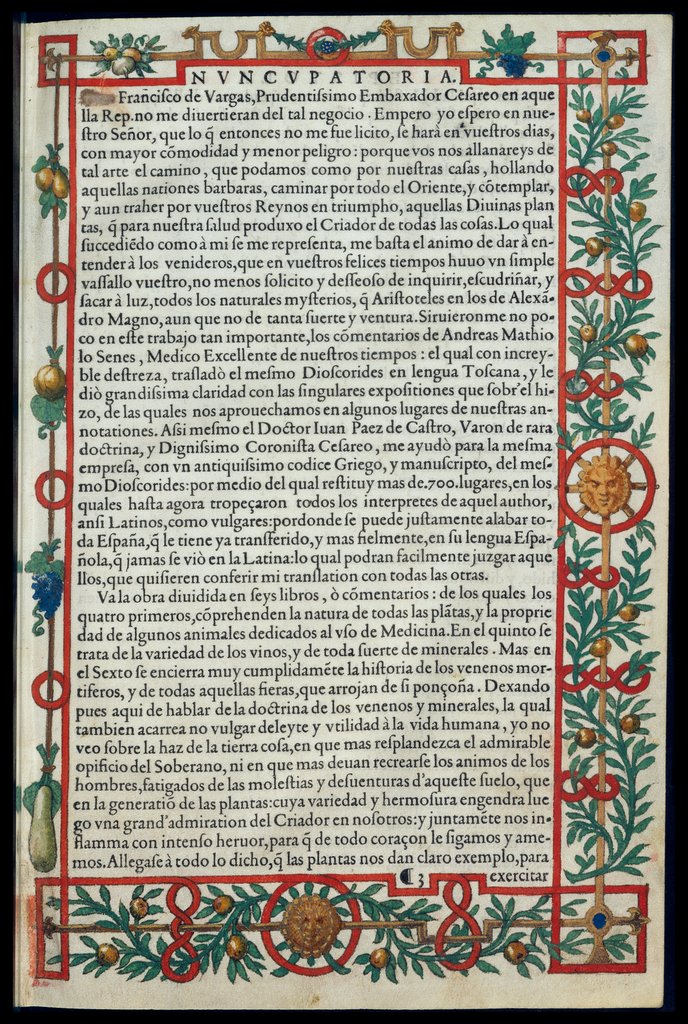 NVNCVPATORIA.
Francisco de Vargas, Prudentissimo Embaxador Cesareo en aque
lla Rep. no me diuertieran del tal negocio. Empero yo espero en nue-
stro Señor, que lo q̃ entonces no me fue licito, se hará en vuestros dias,
con mayor cõmodidad y menor peligro: porque vos nos allanareys de
tal arte el camino, que podamos como por nuestras casas, hollando
aquellas nationes barbaras, caminar por todo el Oriente, y cõtemplar,
y aun traher por vuestros Reynos en triumpho, aquellas Diuinas plan
tas, q̃ para nuestra salud produxo el Criador de todas las cosas. Lo qual
succediẽdo como à mi se me representa, me basta el animo de dar à en-
tender à los venideros, que en vuestros felices tiempos huuo vn simple
vassallo vuestro, no menos solicito y desseoso de inquirir, escudriñar, y
sacar à luz, todos los naturales mysterios, q̃ Aristoteles en los de Alexã-
dro Magno, aun que no de tanta suerte y ventura. Siruieron me no po-
co en este trabajo tan importante, los cõmentarios de Andreas Mathio
lo Senes, Medico Excellente de nuestros tiempos: el qual con increy-
ble destreza, trasladò el mesmo Dioscorides en lengua Toscana, y le
diò grandissima claridad con las singulares expositiones que sobr'el hi-
zo, de las quales nos aprouechamos en algunos lugares de nuestras an-
notationes. Assi mesmo el Doctor Iuan Paez de Castro, Varon de rara
doctrina, y Dignissimo Coronista Cesareo, me ayudò para la mesma
empresa, con vn antiquissimo codice Griego, y manuscripto, del mes-
mo Dioscorides: por medio del qual restituy mas de .700. lugares, en los
quales hasta agora tropeçaron todos los interpretes de aquel author,
ansi Latinos, como vulgares: por donde se puede justamente alabar to-
da España, q̃ le tiene ya transferido, y mas fielmente, en su lengua Espa-
ñola, q̃ jamas se viò en la Latina: lo qual podran facilmente juzgar aque
llos, que quisieren conferir mi translation con todas las otras.
Va la obra diuidida en seys libros, ò cõmentarios: de los quales los
quatro primeros, cõprehenden la natura de todas las plãtas, y la proprie
dad de algunos animales dedicados al vso de Medicina. En el quinto se
trata de la variedad de los vinos, y de toda suerte de minerales. Mas en
el Sexto se encierra muy cumplidamẽte la historia de los venenos mor-
tiferos, y de todas aquellas fieras, que arrojan de si ponçoña. Dexando
pues aqui de hablar de la doctrina de los venenos y minerales, la qual
tambien acarrea no vulgar deleyte y vtilidad à la vida humana, yo no
veo sobre la haz de la tierra cosa, en que mas resplandezca el admirable
opificio del Soberano, ni en que mas deuan recrearse los animos de los
hombres, fatigados de las molestias y desuenturas d'aqueste suelo, que
en la generatiõ de las plantas: cuya variedad y hermosura engendra lue
go vna grand'admiration del Criador en nosotros: y juntamẽte nos in-
flamma con intenso heruor, para q̃ de todo coraçon le sigamos y ame-
mos. Allegase à todo lo dicho, q̃ las plantas nos dan claro exemplo, para
¶ 3 exercitar